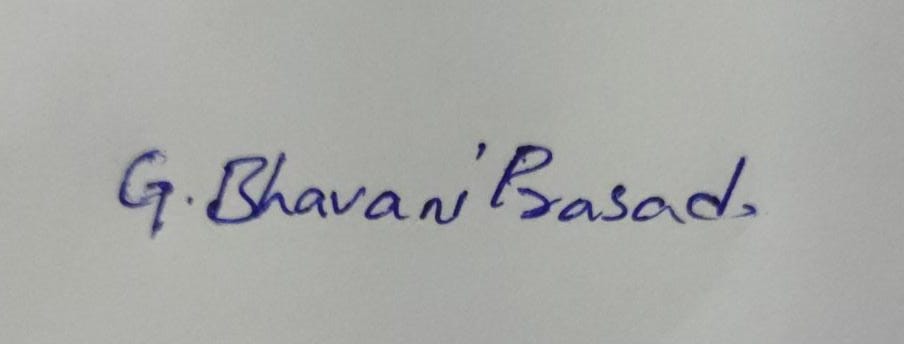 G. Bhavani Prasad.